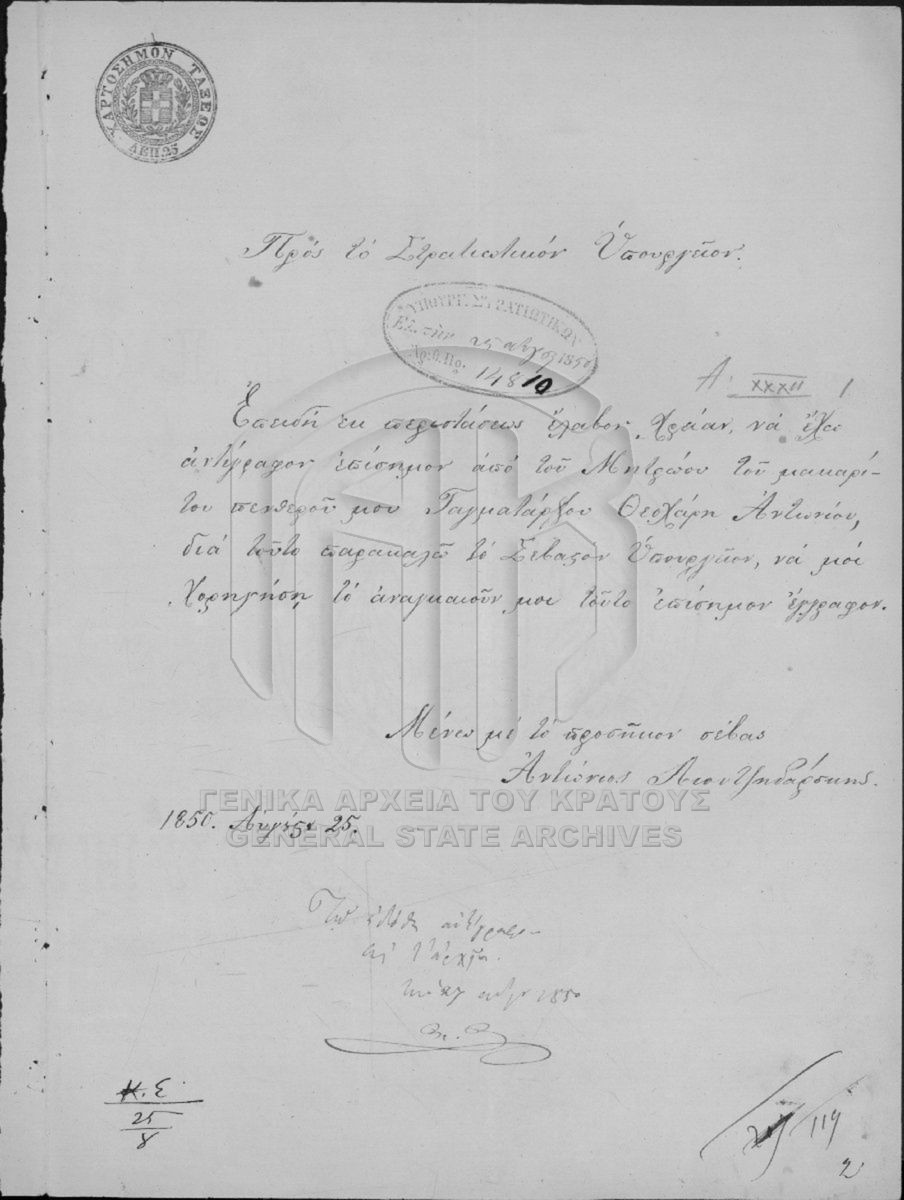 ΧΑΡΤΟΣΗΜΟΝ ΤΑΞΕΩΣ
ΛΕΠ. 25
Πρός τό Στρατιωτικόν Ὑπουργεῖον.
ΥΠΟΥΡΓ. ΣΤΡΑΤΙΩΤΙΚΩΝ
Ελ. τὴν 25 αυγος 1850
Ἀριθ. Πρ. 14810
Α. XXXII 1
Ἐπειδή ἐκ περιστάσεως ἔλαβον χρείαν, νά ἔχω
ἀντίγραφον ἐπίσημον ἀπό τοῦ Μητρώου τοῦ μακαρί-
του πενθεροῦ μου Ταγματάρχου Θεοχάρη Ἀντωνίου,
διά τοῦτο παρακαλῶ τό Σεβαστόν Ὑπουργεῖον, νά μοί
χορηγήσῃ τό ἀναγκαιοῦν μοι τοῦτο ἐπίσημον ἔγγραφον.
Μένω μέ τό προσῆκον σέβας
Ἀντώνιος
1850. Αυγούστ 25.
ΓΕΝΙΚΑ ΑΡΧΕΙΑ ΤΟΥ ΚΡΑΤΟΥΣ
GENERAL STATE ARCHIVES
1850
Κ. Ε.
25
8
119
2